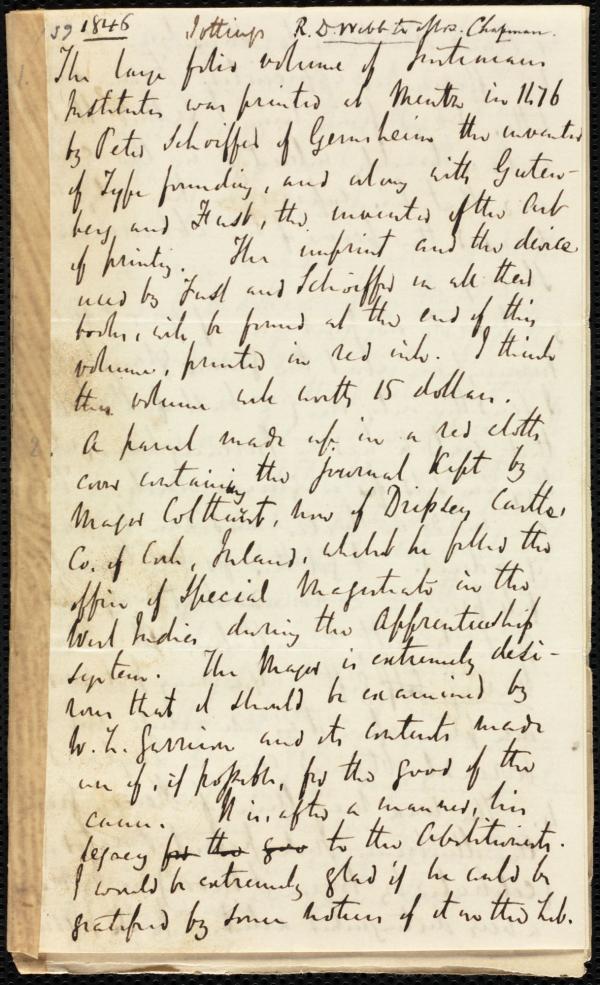 59 1846 Jottings R. D. Webb to Mrs. Chapman.
1. The large folio volume of Justinian's
Institutes was printed at Mentz in 1476
by Peter Schoiffer of Gernsheim the inventor
of Type founding, and along with Guten-
berg and Faust, the inventor of the Art
of printing. The imprint and the device
used by Fust and Schoiffer in all their
books, will be found at the end of this
volume, printed in red ink. I think
this volume well worth 15 dollars.
2. A parcel made up in a red cloth
cover containing the Journal Kept by
Major Colthurst, now of Dripsey Castle,
Co. of Cork, Ireland, whilst he filled the
office of Special Magistrate in the
West Indies during the Apprenticeship
system. The Major is extremely desi-
rous that it should be examined by
W. L. Garrison and its contents made
use of, if possible, for the good of the
cause. It is, after a manner, his
legacy for the goo to the Abolitionists.
I would be extremely glad if he could be
gratified by some notice of it in the Lib.